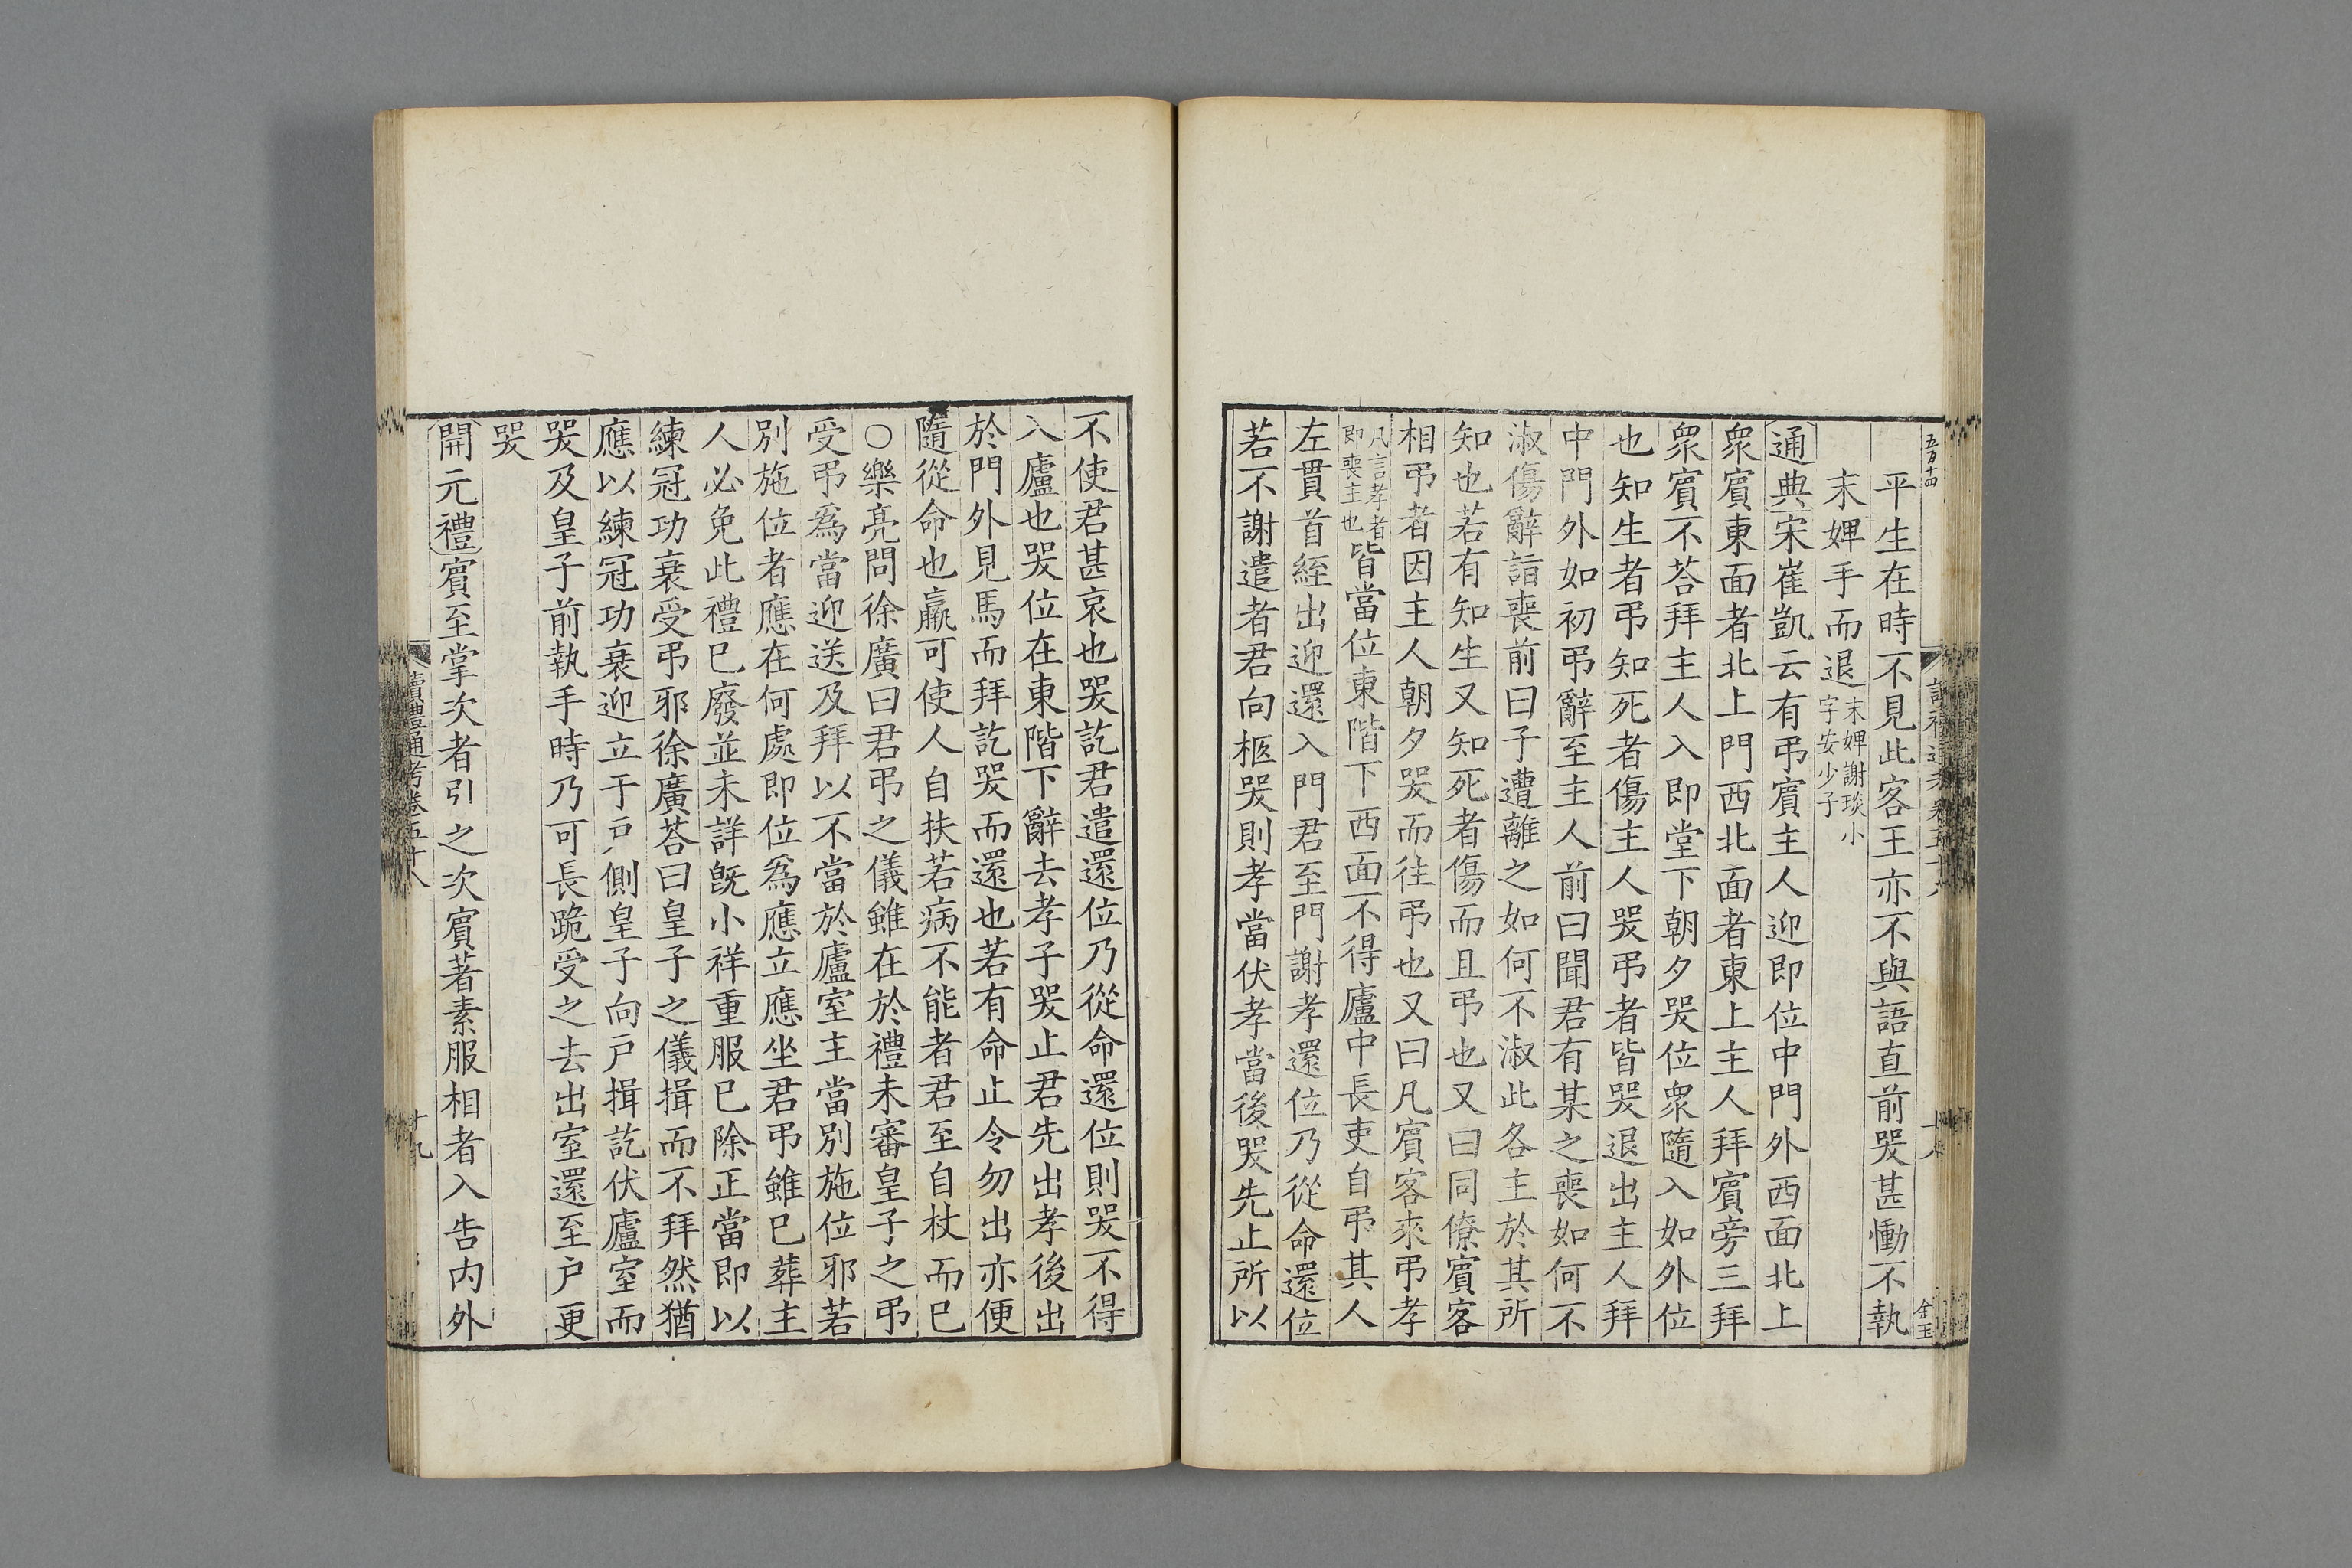 五百十四
平生在時不見此客王亦不與語直前哭甚慟不執
末婢手而退末婢謝琰小字安少子
通典宋崔凱云有弔賔主人迎即位中門外西面北上
衆賔東面者北上門西北面者東上主人拜賔旁三拜
衆賔不荅拜主人入即堂下朝夕哭位衆隨入如外位
也知生者弔知死者傷主人哭弔者皆哭退出主人拜
中門外如初弔辭至主人前曰聞君有某之喪如何不
淑傷辭詣喪前曰子遭離之如何不淑此各主於其所
知也若有知生又知死者傷而且弔也又曰同僚賔客
相弔者因主人朝夕哭而往弔也又曰凡賔客來弔孝
凡言孝者即喪主也皆當位東階下西面不得廬中長吏自弔其人
左貫首絰出迎還入門君至門謝孝還位乃從命還位
若不謝遣者君向柩哭則孝當伏孝當後哭先止所以
不使君甚哀也哭訖君遣還位乃從命還位則哭不得
入廬也哭位在東階下辭去孝子哭止君先出孝後出
於門外見馬而拜訖哭而還也若有命止令勿出亦便
隨從命也羸可使人自扶若病不能者君至自杖而已
○樂亮問徐廣曰君弔之儀雖在於禮未審皇子之弔
受弔爲當迎送及拜以不當於廬室主當別施位邪若
別施位者應在何處即位爲應立應坐君弔雖已葬主
人必免此禮已廢並未詳既小祥重服已除正當即以
練冠功衰受弔邪徐廣荅曰皇子之儀揖而不拜然猶
應以練冠功衰迎立于戸側皇子向戸揖訖伏廬室而
哭及皇子前執手時乃可長跪受之去出室還至戸更
哭
開元禮賔至掌次者引之次賔著素服相者入告内外
讀禮通考卷五十八
十九